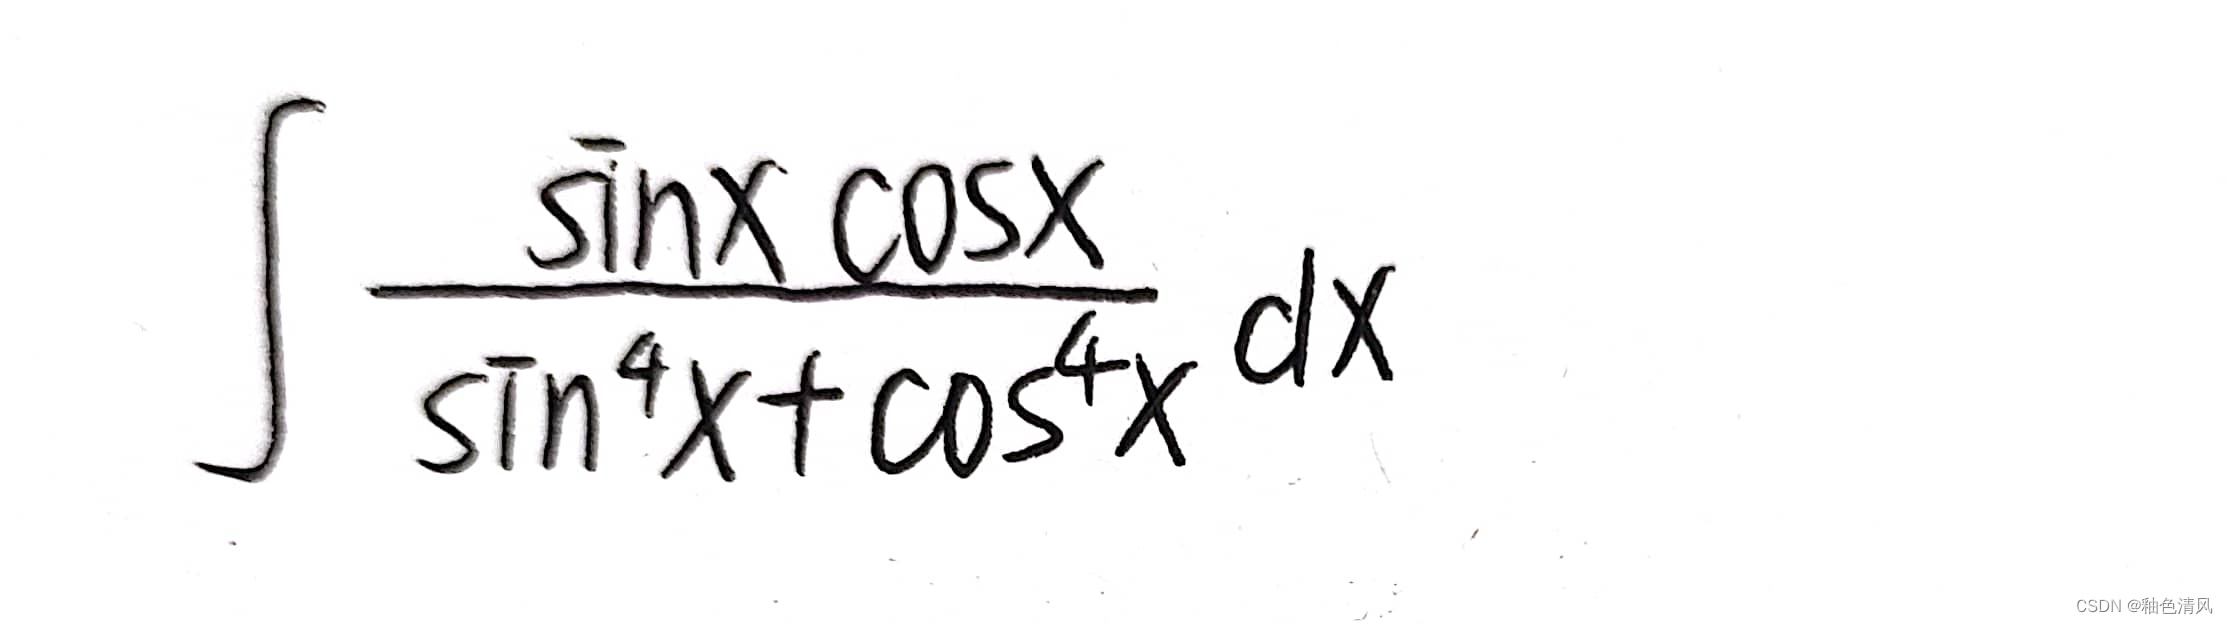 ∫ sinx cosx / sin⁴x + cos⁴x dx
CSDN @釉色清风